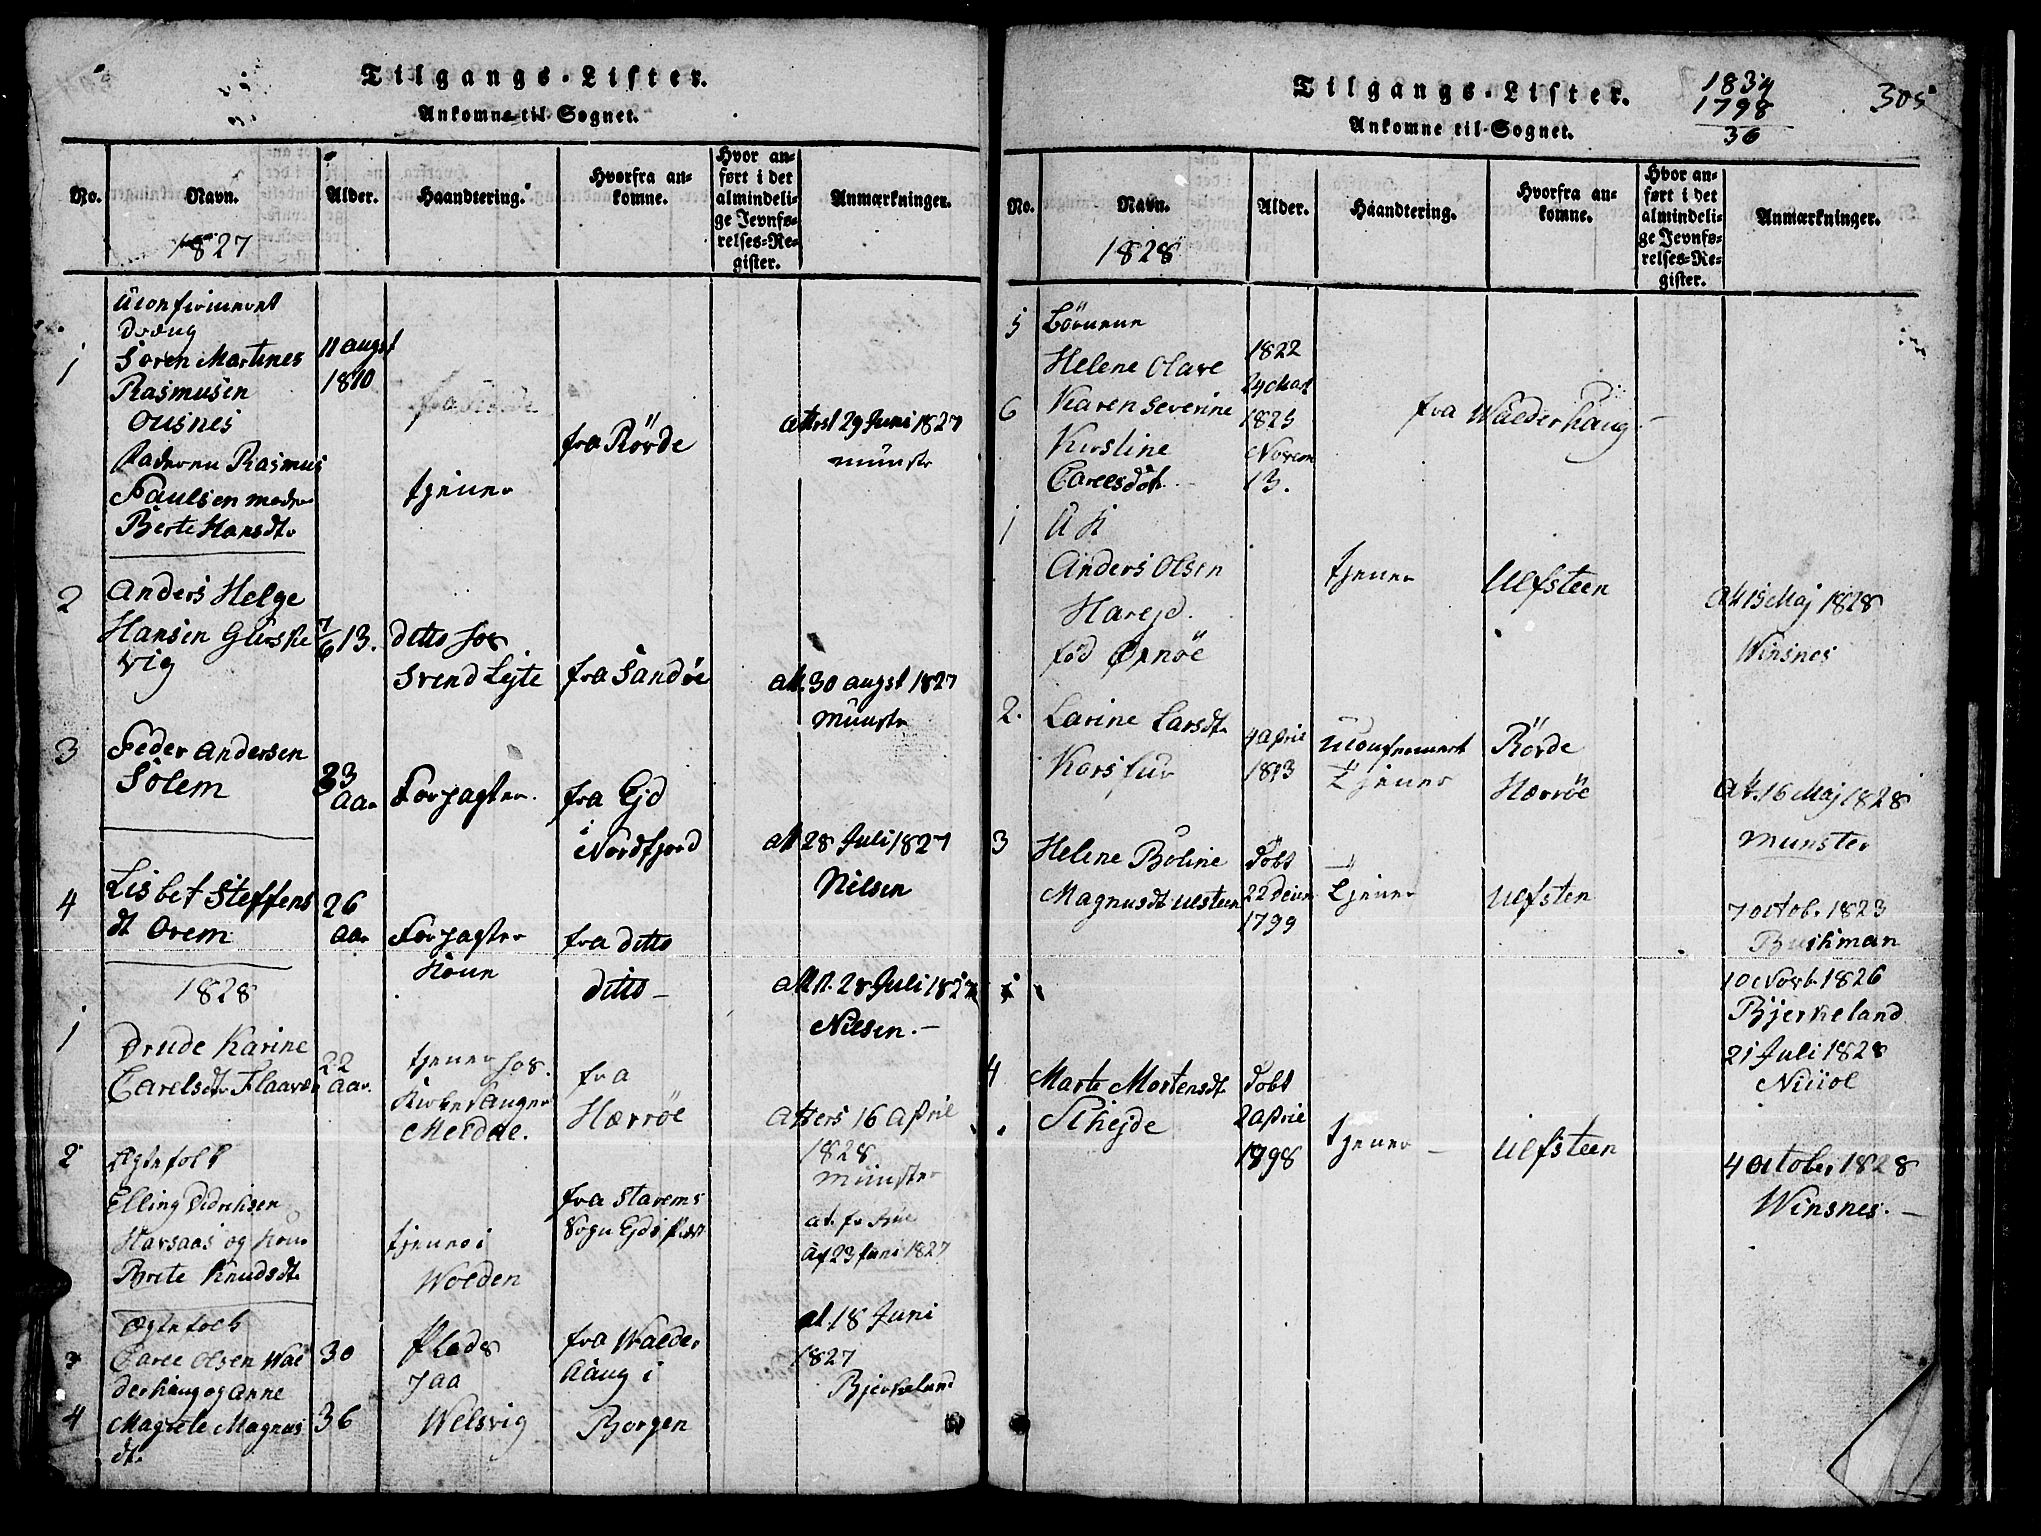 Tilgangs-Lister.
Ankomne til Sognet.
No.
Navn.
Alder.
Haandtering.
Hvorfra an-
komne.
Hvor an-
ført i det
almindeli-
ge Jevnfø-
relses-Re-
gister.
Anmærkninger.
1827
1
Uconfirmeret
Dreng
Søren Martines
Rasmusen
Ousnes
Faderen Rasmus
Paulsen moder
Berte Hansdtr
11 augst
1810
tjener
fra Rövde
Attest 29 Juni 1827
münster
2
Anders Helge
Hansen Gurske
vig
7/6 13.
ditto hos
Svend Lejte
fra Sandöe
att. 30 augst 1827
Münster
3
Peder Andersen
Solem
33
aar
Forpagter
fra Ejd
i
Nordfjord
att 28 Juli 1827
Nilsen
4
Lisbet Steffens
dt Orem
26
aar
Forpagter
Kone
fra ditto
ditto
att. 28 Juli 1827
Nilsen.
1828
1
Drude Karine
Carelsdtr Flaavær
22
aar.
tjener hos
Kirkesanger
Meldal.
fra
Herröe
Attest 16 April
1828
münster
2
Ægtefolk
Elling Didrichsen
Harsaas og kone
Brete Knudsdtr
tjener i
Wolden
fra Starems
Sogn Ejds Præst
af 23 Juni 1827
Ægtefolk
3
Carel Olsen Wal
derhaug og Anne
4
Magrete Magnus
dt.
30
36
Plads
paa
Welsvig
fra Walder
haug i
Borgen
at 18 Juni
1827
Bjerkeland
Tilgangs-Lister.
Ankomne til Sognet.
1834
1798
36
305
No.
Navn.
Alder.
Haandtering.
Hvorfra an-
komne.
Hvor an-
ført i det
almindeli-
ge Jevnfø-
relses-Re-
gister.
Anmærkninger.
1828
5
Börnene
Helene Olave
6
Karen Severine
Kirstine
Carelsdtr
1822
24 Mart
1825
Novem
13.
fra Walderhaug
1
U K
Anders Olsen
Harejd.
föd Ørnöe
tjener
Ulfsteen
At 15 Maj 1828
Winsnes
2.
Larine Larsdtr
Korsfur
4 April
1813
Uconfirmert
tjener
Rövde
Herröe
At. 16 Maj 1828
Munster
3
Helene Boline
Magnusdt Ulsteen
Döbt
22 Decem
1799
tjener
Ulfsten
7 octob. 1823
Buschman
10 Novb. 1826
Bjerkeland
21 Juli 1828
4
Marte Mortensdt
Skejde
Döbt
2 April
1798
tjener
Ulfsteen
4 October 1828
Winsnes.